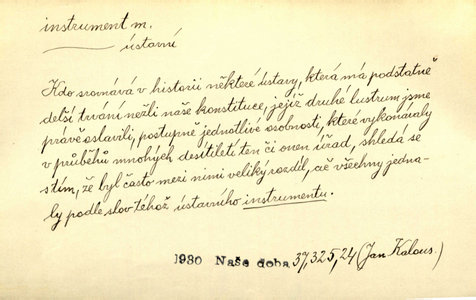 instrument m.
ústavní
Kdo srovnává v historii některé ústavy, která má podstatně
delší trvání nežli naše konstituce, jejíž druhé lustrum jsme
právě oslavili, postupně jednotlivé osobnosti, které vykonávaly
v průběhu mnohých desítiletí ten či onen úřad, shledá se
s tím, že byl často mezi nimi veliký rozdíl, ač všechny jedna-
ly podle slov téhož ústavního instrumentu.
1930 Naše doba 37,325,24 (Jan Kalous.)